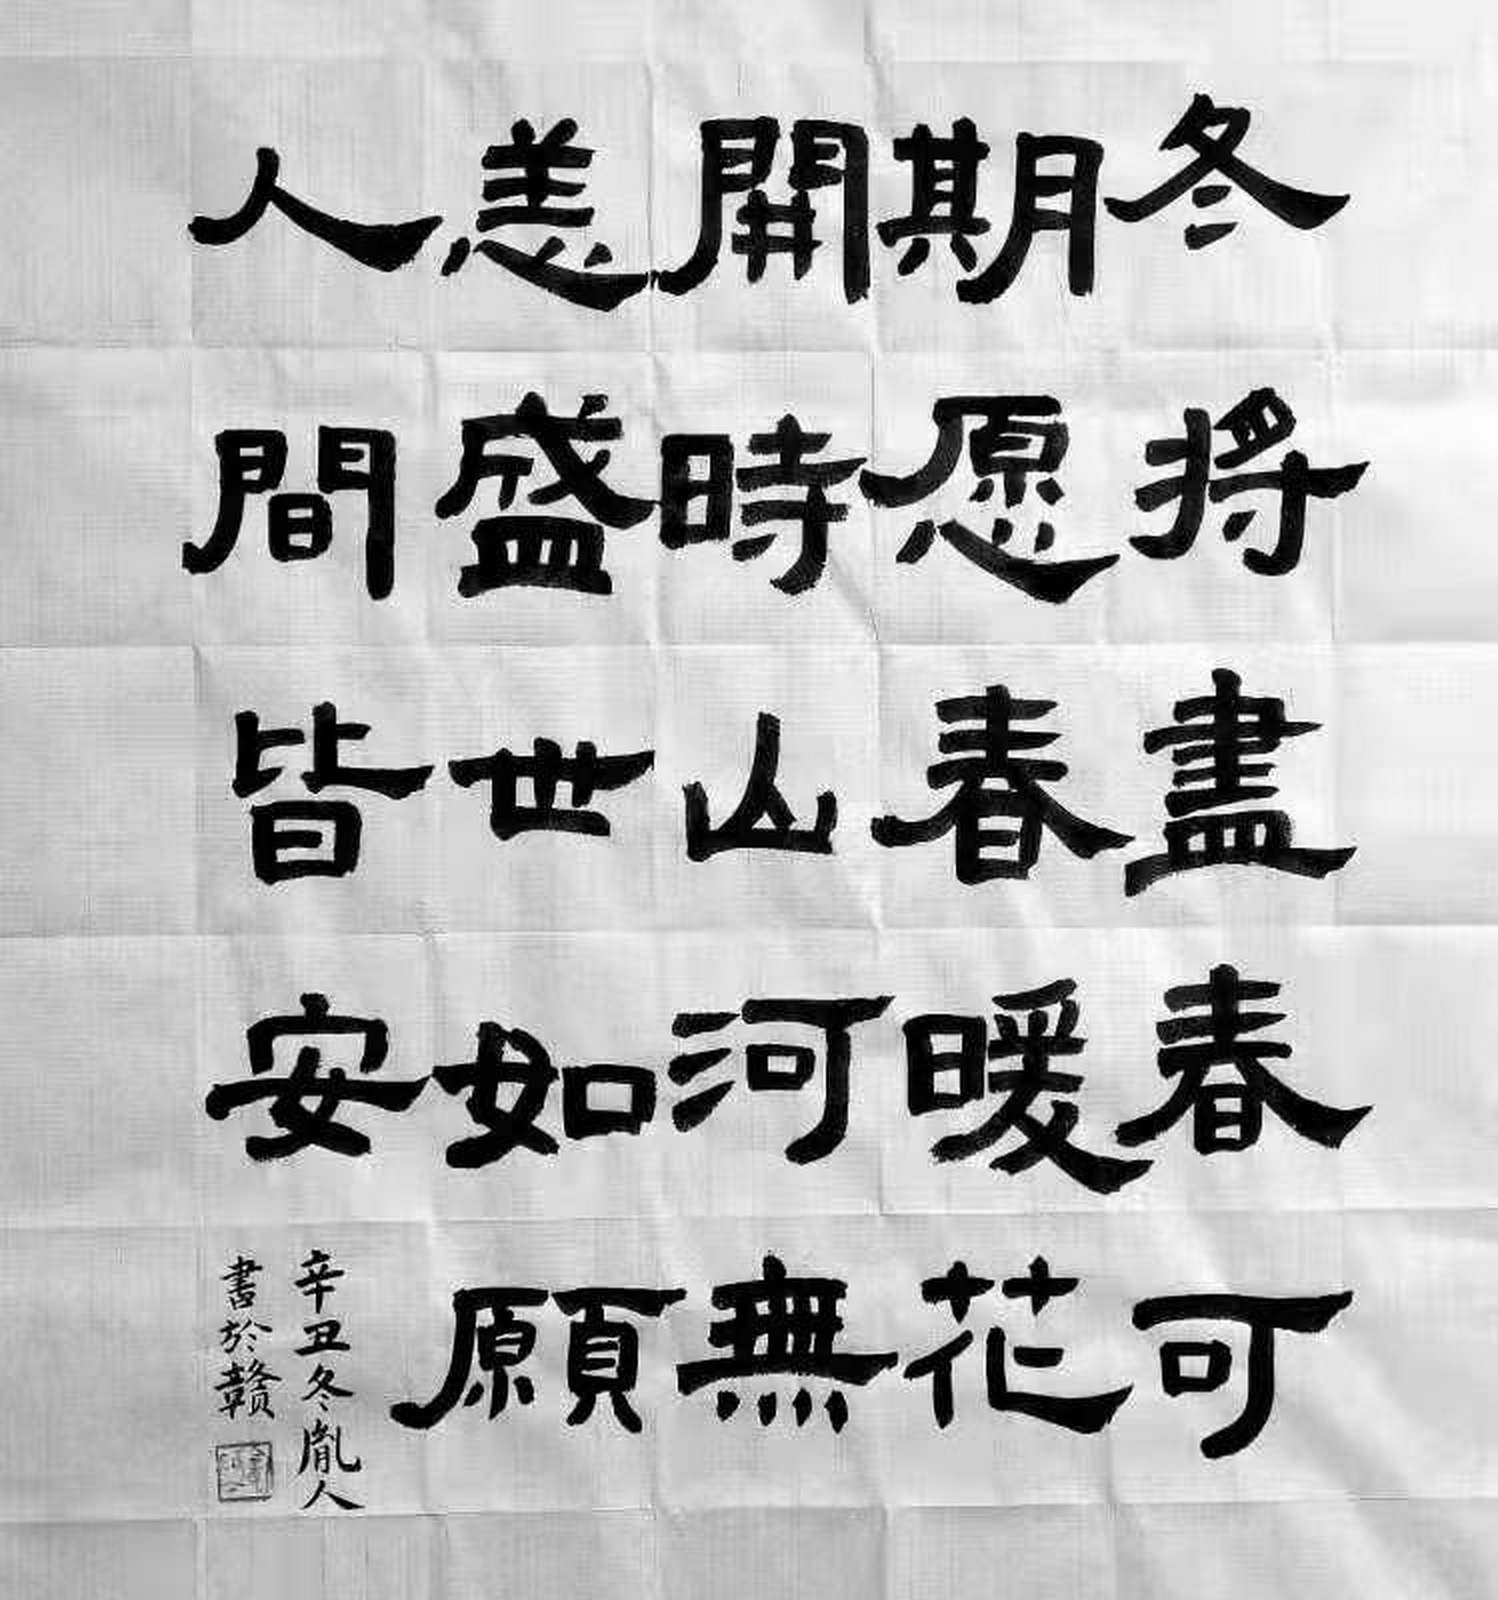 冬将盡春可
期愿春暖花
開時山河無
恙盛世如願
人間皆安
辛丑冬胤人
書於贛